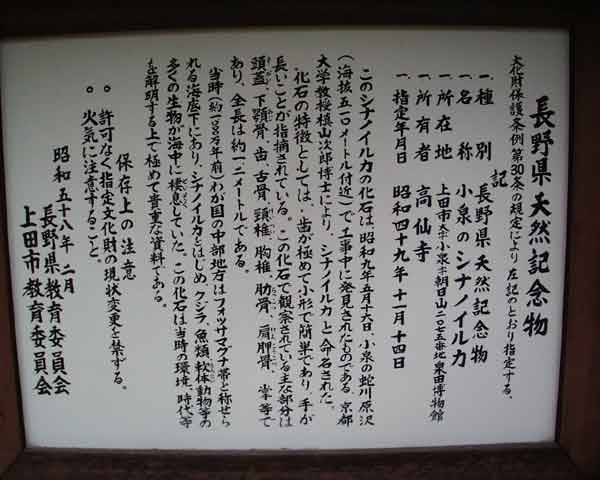 長野県天然記念物
文化財保護条例第30条の規定により左記のとおり指定する。
記
一、種別 長野県天然記念物
一、名称 小泉のシナノイルカ
一、所在地 上田市大字小泉字朝日山二〇七五番地泉田博物館
一、所有者 高仙寺
一、指定年月日 昭和四十九年十一月十四日
このシナノイルカの化石は、昭和九年五月十六日、小泉の蛇川原沢
(海抜五一〇メートル付近)で、工事中に発見されたものである。京都
大学教授槇山次郎博士により、シナノイルカと命名された。
化石の特徴としては、歯が極めて小形で簡単であり、手が
長いことが指摘されている。この化石で観察されている主な部分は
頭蓋、下顎骨、歯、舌骨、頸椎、胸椎、肋骨、肩胛骨、掌等で
あり、全長は約一・二メートルである。
当時(約 万年前)わが国の中部地方はフォッサマグナ帯と称せら
れる海底下にあり、シナノイルカをはじめ、クジラ、魚類、軟体動物等の
多くの生物が海中に棲息していた。この化石は当時の環境、時代等
を解明する上で極めて貴重な資料である。
保存上の注意
。許可なく指定文化財の現状変更を禁ずる。
。火気に注意すること。
昭和五十八年二月
長野県教育委員会
上田市教育委員会